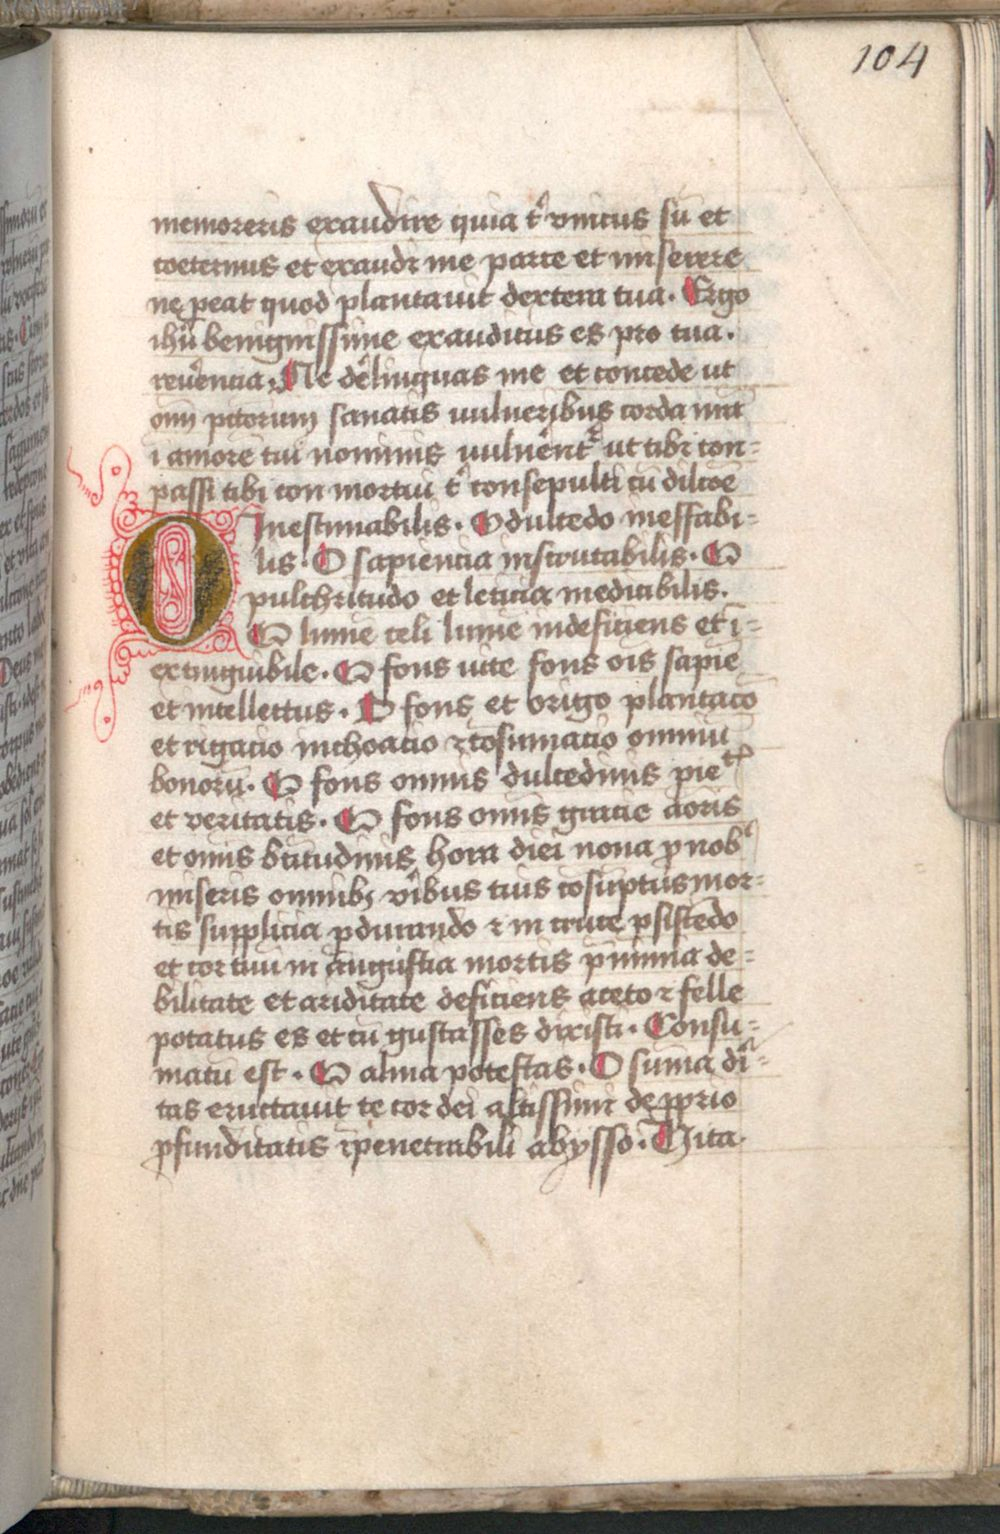 104
memoreris exaudire quia tᵉ vnicus sū et
coeternus et exaudi me patre et miserere
ne ꝑeat quod plantauit dextera tua. Ergo
ihū benignissime exauditus es pro tua.
reuͤencia. Ne dᵉlinquas me et concede ut
om̄ pctorum sanatis uulneribus corda nr̄a
ī amore tui nominis uulnēnt᷑ ut tibi con=
passi tibi con mortui ⁊ consepulti cū dilcōe
O Inestimabilis. O dulcedo ineffabi=
lis. O sapiencia inscrutabilis. O
pulchritudo et leticia medicabilis.
O lumē celi lumē indeficiens et ī=
extinguibile. O fons uite fons ōis sapīe
et intellectus. O fons et origo plantacō
et rigacio inchoacio ⁊ cōsumacio omniū
bonorū. O fons omnis dulcedinis pieᵗⁱˢ
et veritatis. O fons om̄is gracie aōris
et om̄is btitudinis hora diei nona ꝓ nobᵒ
miseris omnibꝫ vīribus tuis cōsūptus mor=
tis supplicia ꝑdurando ⁊ in cruce ꝑsistēdo
et cor tuū in angustia mortis p̄nimia de=
bilitate et ariditate deficiens aceto ⁊ felle
potatus es et cū gustasses dixisti. Consu=
matū est. O alma potestas. O sūma dīͥ=
tas eructauit te cor dei altissimi de ꝓprio
ꝓfunditatis īpenetrabili abysso. Vita.